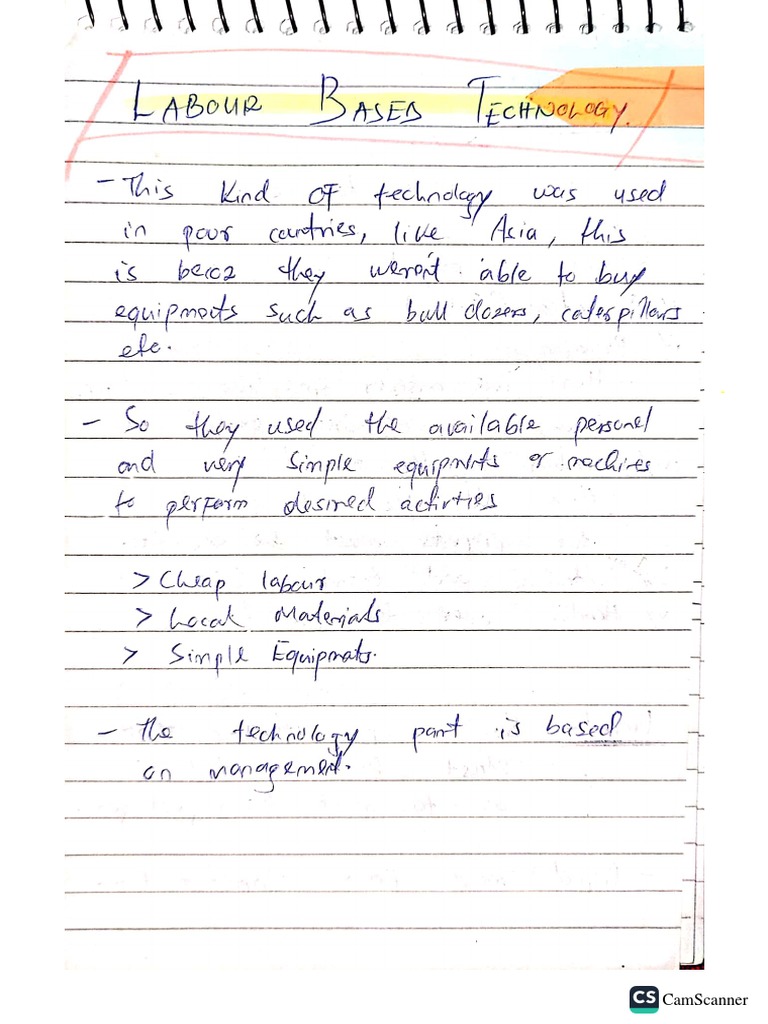 LABOUR BASED TECHNOLOGY.
- This kind of technology was used
in poor countries, like Asia, this
is becoz they weren't able to buy
equipments such as bull dozers, caterpillars
etc.
- So they used the available personel
and very simple equipments or machines
to perform desired activties
> Cheap labour
> Local Materials
> Simple Equipmats.
- The technology part is based
on management.
CS CamScanner